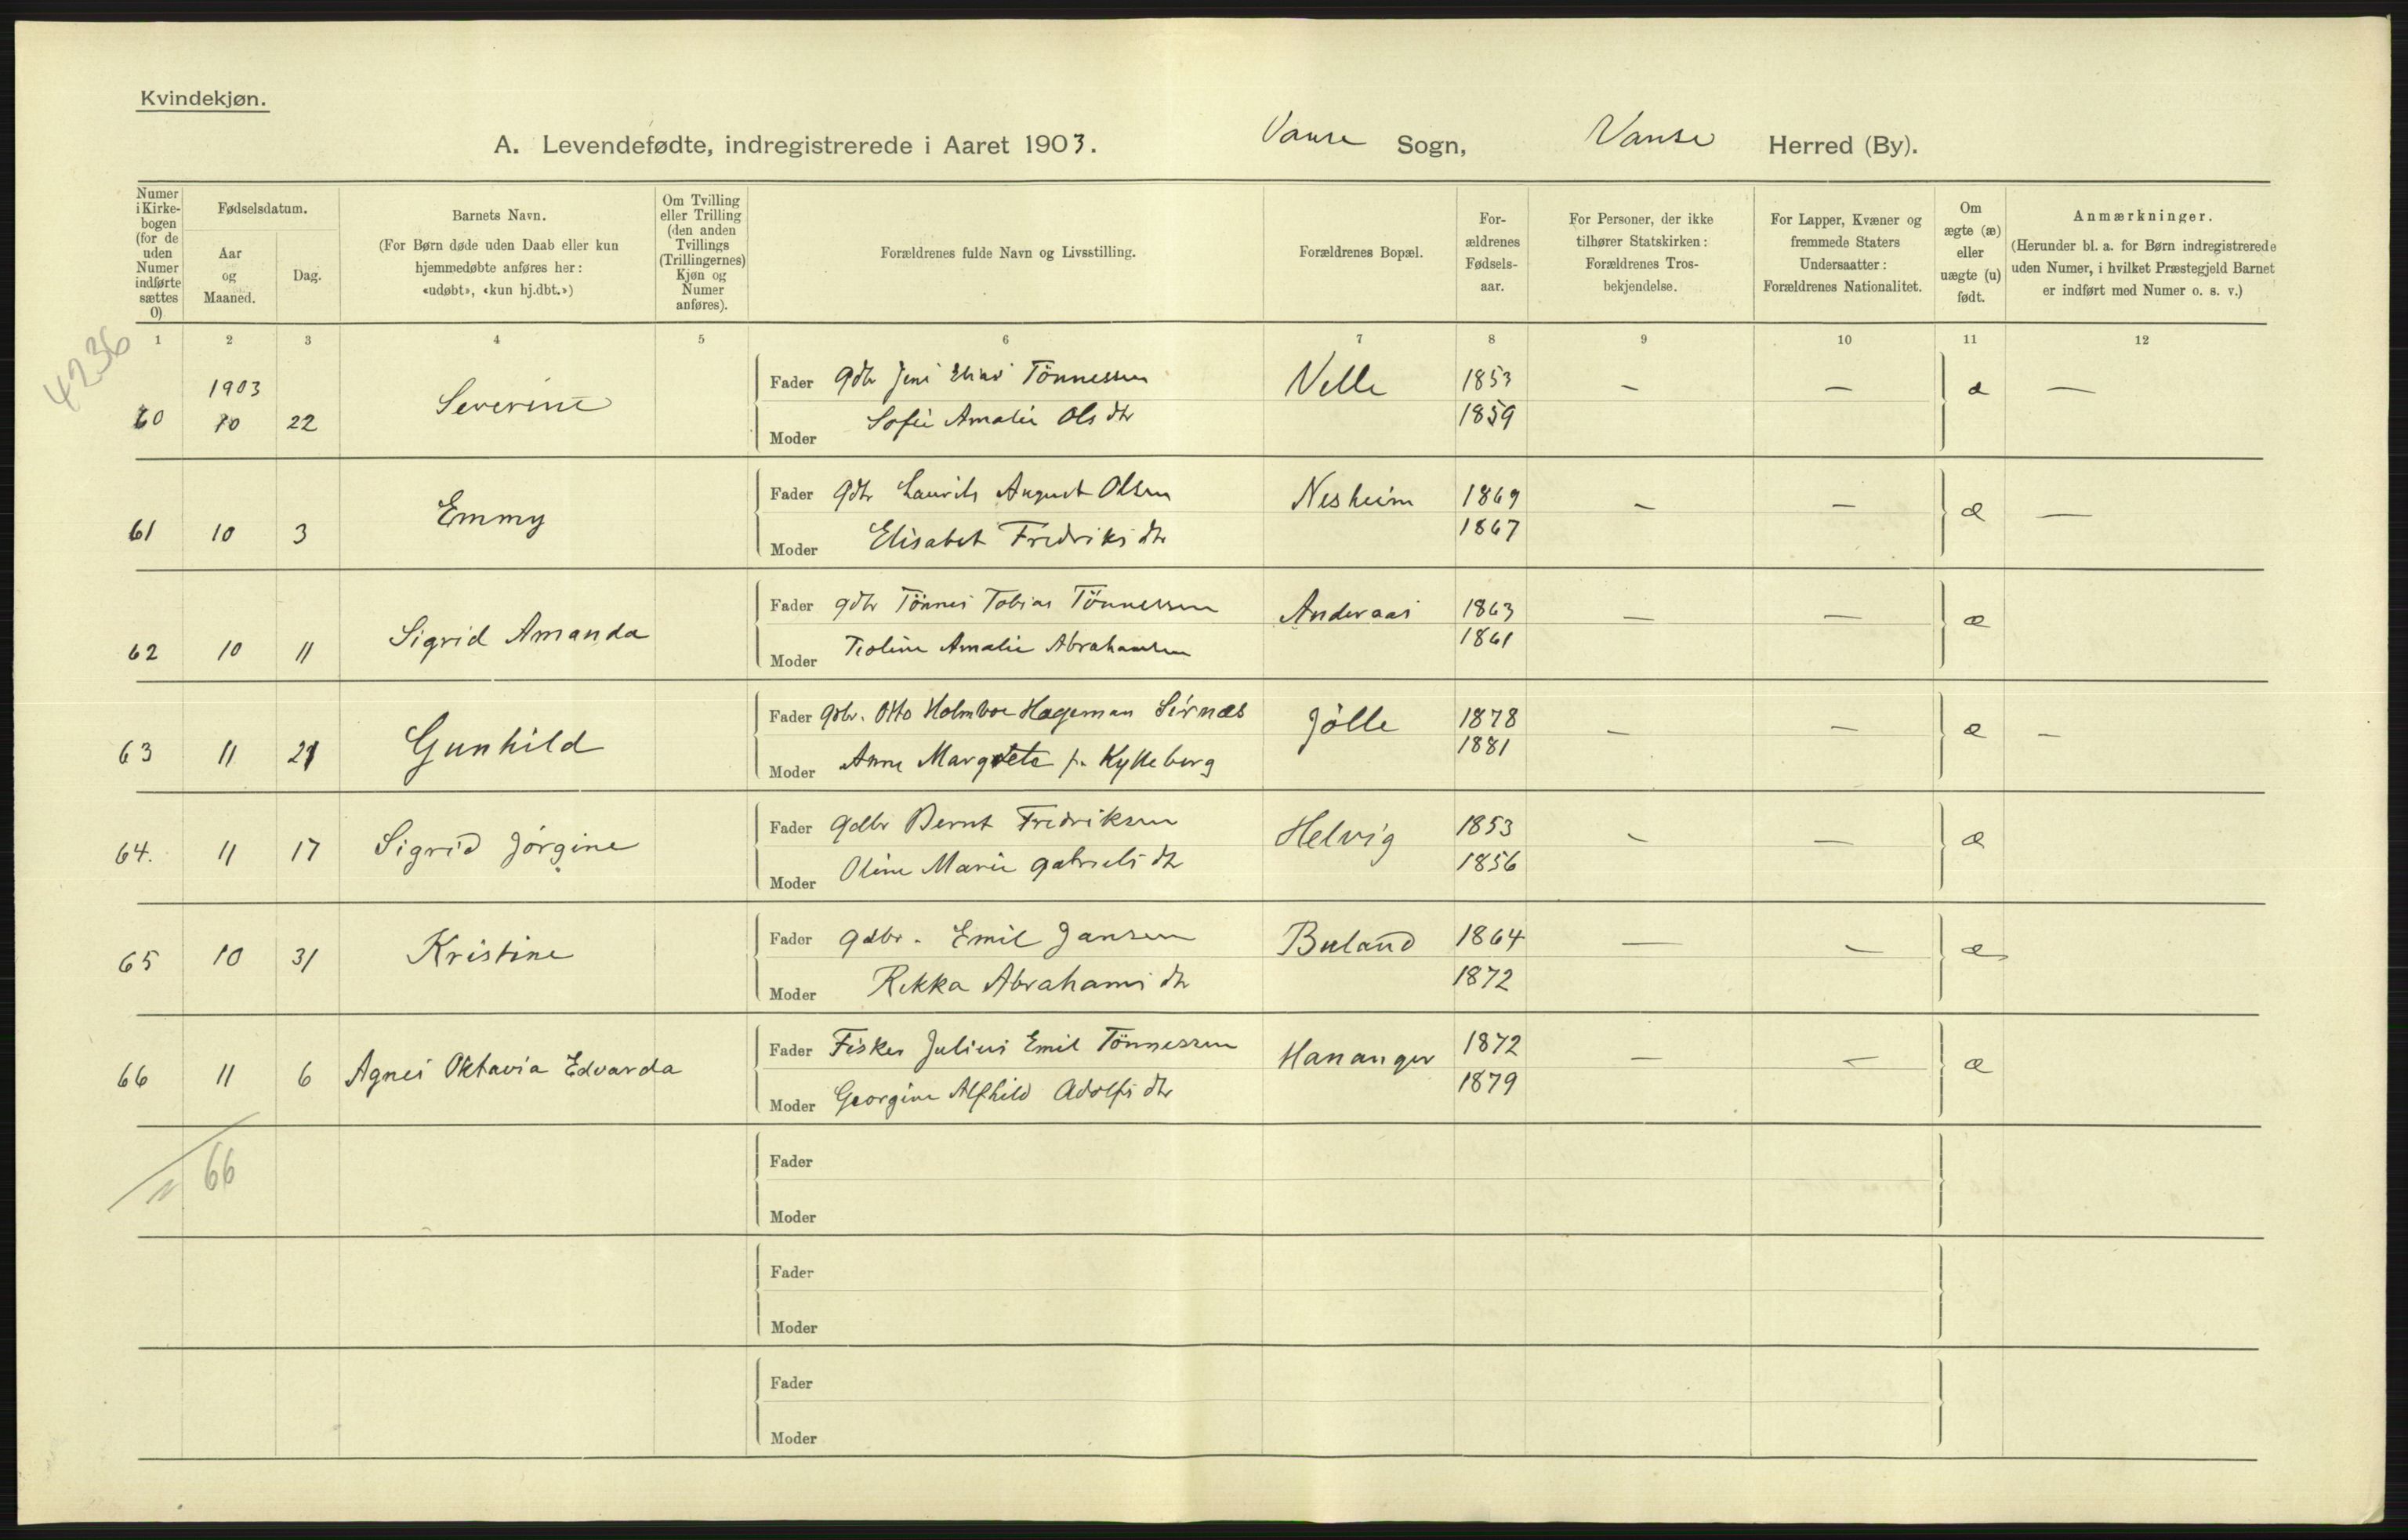 Kvindekjøn.
A. Levendefødte, indregistrerede i Aaret 1903. Vanse Sogn, Vanse Herred (By).
Numer i Kirkebogen (for de uden Numer indførte sættes 0)
Fødselsdatum.
Aar og Maaned.
Dag.
Barnets Navn.
(For Børn døde uden Daab eller kun hjemmedøbte anføres her: «udøbt», «kun hj.dbt.»)
Om Tvilling eller Trilling (den anden Tvillings (Trillingernes) Kjøn og Numer anføres).
Forældrenes fulde Navn og Livsstilling.
Forældrenes Bopæl.
Forældrenes Fødselsaar.
For Personer, der ikke tilhører Statskirken: Forældrenes Trosbekjendelse.
For Lapper, Kvæner og fremmede Staters Undersaatter: Forældrenes Nationalitet.
Om ægte (æ) eller uægte (u) født.
Anmærkninger.
(Herunder bl. a. for Børn indregistrerede uden Numer, i hvilket Præstegjeld Barnet er indført med Numer o. s. v.)
1 2 3 4 5 6 7 8 9 10 11 12
4236
1903
60 10 22 Severine Fader Gdbr Jens Elias Tönnessen Velle 1853 – – æ –
Moder Sofie Amalie Olsdtr 1859
61 10 3 Emmy Fader Gdbr Laurits August Olsen Nesheim 1869 – – æ –
Moder Elisabet Fredriksdtr 1867
62 10 11 Sigrid Amanda Fader gdbr Tönnes Tobias Tönnessen Anderaas 1863 – – æ
Moder Teoline Amalie Abrahamsen 1861
63 11 21 Gunhild Fader Gdbr. Otto Holmboe Hageman Sirnæs Jölle 1878 – – æ –
Moder Anne Margrete f. Kylleberg 1881
64. 11 17 Sigrid Jörgine Fader Gdbr Bernt Fredriksen Helvig 1853 – – æ
Moder Oline Marie Gabrielsdtr 1856
65 10 31 Kristine Fader gdbr. Emil Jansen Buland 1864 – – æ
Moder Rekka Abrahamsdtr 1872
66 11 6 Agnes Oktavia Edvarda Fader Fisker Julius Emil Tönnessen Hananger 1872 – – æ
Moder Georgine Alfhild Adolfsdtr 1879
66
Fader
Moder
Fader
Moder
Fader
Moder